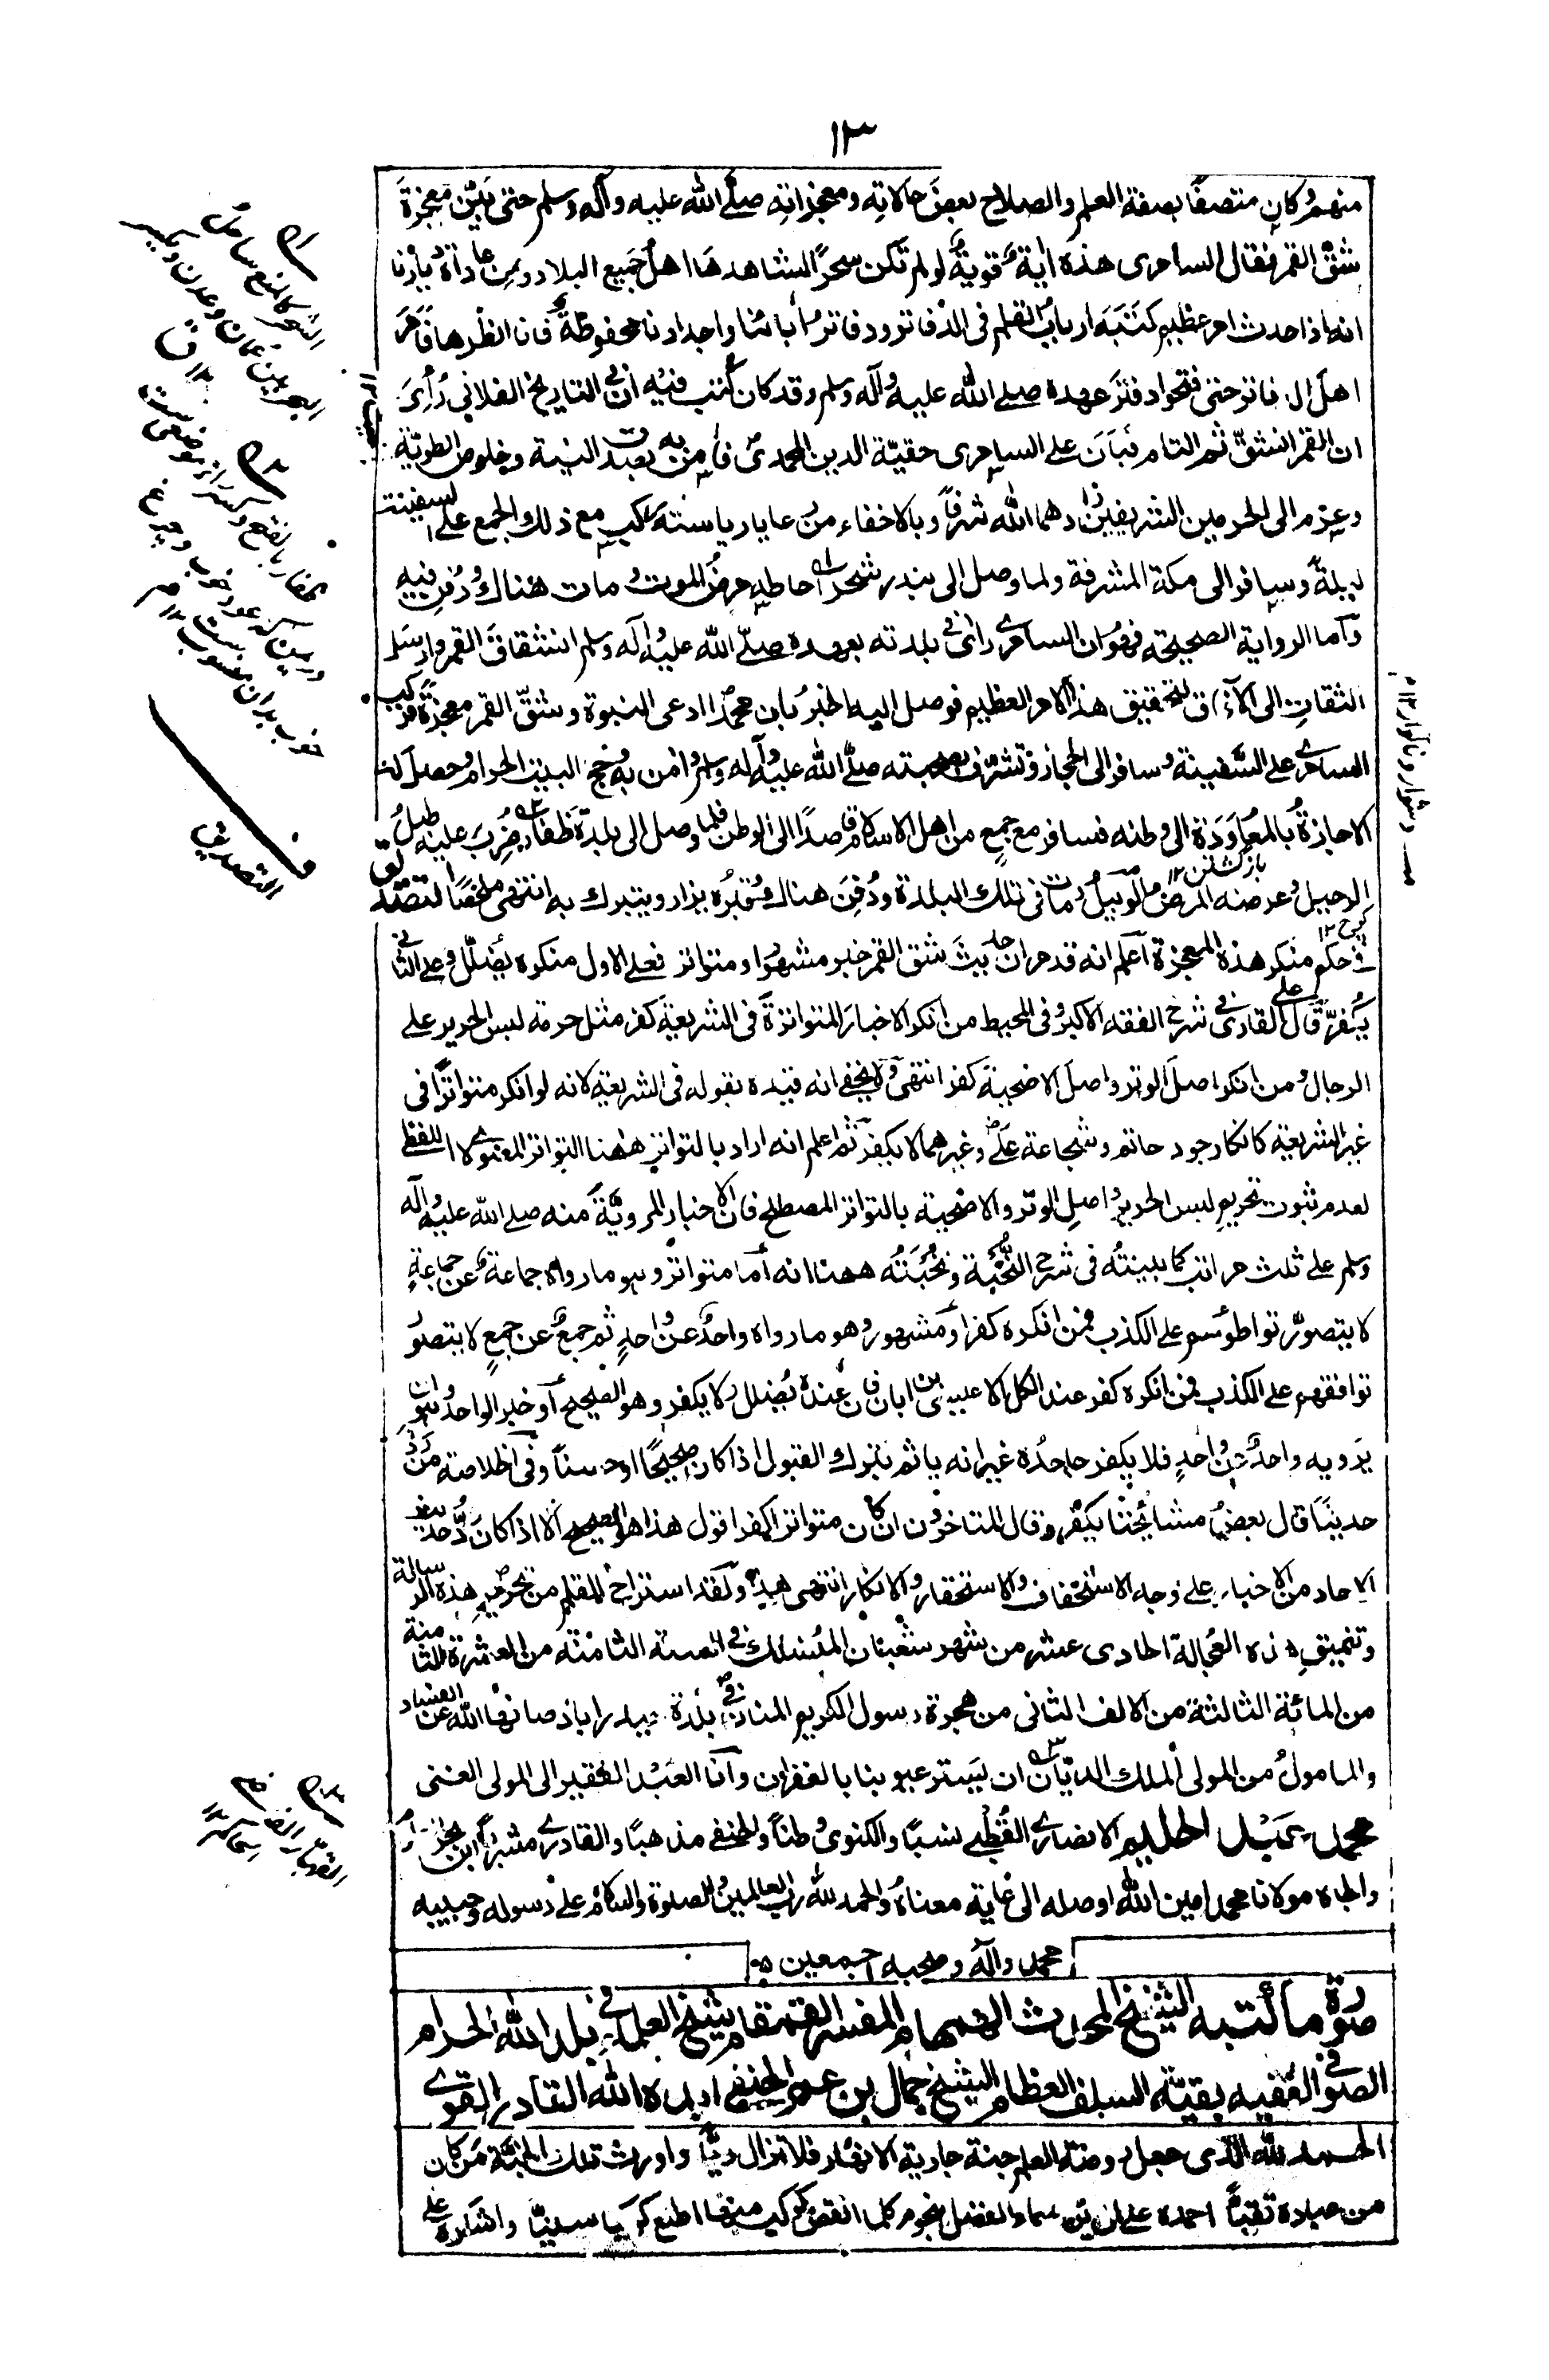 ١٣
منهم كان متصفا بصفة العلم والصلاح بعض حالاته ومعجزاته صلى الله عليه وآله وسلم حتى بين معجزة
شق القمر فقال السامري هذه اية قوية لو لم تكن سحرا لشاهدها اهل جميع البلاد ومن عاداة ديارنا
انه اذا حدث امر عظيم كتبه ارباب القلم في الدفاتر ودفاتر آبائنا واجدادنا محفوظة فانا انظرها فامر
اهل الدفاتر حتى فتحوا دفتر عهده صلى الله عليه وآله وسلم وقد كان كتب فيه ان في التاريخ الفلاني رأى
ان القمر انشق ثم التام فبان على السامري حقية الدين المحمدي فآمن به بصدق النية وخلوص الطوية
وعزم الى الحرمين الشريفين زادهما الله شرفا وبالاخفاء من رعايا رياسته ركب مع ذلك الجمع على السفينة
ليلة وسافر الى مكة المشرفة ولما وصل الى بندر شحر احاط به مرض الموت ومات هناك ودفن فيه
وأما الرواية الصحيحة فهو ان السامري رأى في بلدته بعهده صلى الله عليه وآله وسلم انشقاق القمر وارسل
الثقات الى الآفاق لتحقيق هذا الامر العظيم فوصل اليه الخبر بان محمدا ادعى النبوة وشق القمر معجزة فركب
السامري على السفينة وسافر الى الحجاز وتشرف بصحبته صلى الله عليه وآله وسلم وامن به وحج البيت الحرام وحصل له
الاجازة بالمعاودة الى وطنه فسافر مع جمع من اهل الاسلام قاصدا الى الوطن فلما وصل الى بلدة ظفار ضرب عليه طبل
بازگشتن ١٢
الرحيل وعرضه المرض الوبيل ومات في تلك البلدة ودفن هناك وقبره يزار ويتبرك به انتهى ملخصا التصديق
كوچ ١٢
في حكم منكر هذه المعجزة اعلم انه قد مر ان حديث شق القمر خبر مشهور او متواتر فعلى الاول منكره يضلل وعلى الثاني
يكفر قال علي القاري في شرح الفقه الاكبر وفي المحيط من انكر الاخبار المتواترة في الشريعة كفر مثل حرمة لبس الحرير على
الرجال ومن انكر اصل الوتر واصل الاضحية كفر انتهى ولا يخفى انه قيده بقوله في الشريعة لانه لو انكر متواترا في
غير الشريعة كانكار جود حاتم وشجاعة علي وغيرهما لا يكفر ثم اعلم انه اراد بالتواتر ههنا التواتر المعنوي لا اللفظي
لعدم ثبوت تحريم لبس الحرير واصل الوتر والاضحية بالتواتر المصطلح فان الاخبار المروية منه صلى الله عليه وآله
وسلم على ثلث مراتب كما بينته في شرح النخبة ونخبته ههنا انه أما متواتر وهو ما رواه جماعة عن جماعة
لا يتصور تواطؤهم على الكذب فمن انكره كفر او مشهور وهو ما رواه واحد عن واحد ثم جمع عن جمع لا يتصور
توافقهم على الكذب فمن انكره كفر عند الكل الا عيسى بن ابان فان عنده يضلل ولا يكفر وهو الصحيح أو خبر الواحد وهو ان
يرويه واحد عن واحد فلا يكفر جاحده غير انه ياثم بترك القبول اذا كان صحيحا او حسنا وفي الخلاصة من رد
حديثا قال بعض مشائخنا يكفر وقال المتاخرون ان كان متواترا كفر اقول هذا هو الصحيح الا اذا كان رد حديث
الاحاد من الاخبار على وجه الاستخفاف والاستحقار والانكار انتهى هذا ولقد استراح القلم من تحرير هذه الرسالة
وتنميق هذه العجالة الحادي عشر من شهر شعبان المنسلك في السنة الثامنة من العشرة الثامنة
من المائة الثالثة من الالف الثاني من هجرة رسول الكريم المنان في بلدة حيدراباد صانها الله عن الفساد
والمامول من المولى الملك الديان ان يستر عيوبنا بالغفران وأنا العبد الفقير الى المولى الغني
محمد عبد الحليم الانصاري القطبي نسبا واللكنوي وطنا والحنفي مذهبا والقادري مشربا ابن
والجاه مولانا محمد امين الله اوصله الى غاية معناه والحمد لله رب العالمين والصلوة والسلام على رسوله وحبيبه
محمد وآله وصحبه اجمعين
صورة ما كتبه الشيخ المحدث الهمام المفسر القمقام شيخ العلماء في بلد الله الحرام
الصوفي الفقيه بقية السلف العظام الشيخ جمال بن عمر الحنفي ايده الله القادر القوي
الحمد لله الذي جعل روضة العلم جنة جارية الانهار فلا تزال ريا واورث تلك الجنة من كان
من عباده تقيا احمده على ان زين سماء الفضل بنجوم كلما انقض كوكب منها اطلع كوكبا سنيا واشكره على
الشحر كالمنع ساحل
البحر بين عمان وعدن ويكسر
١٢ ق
التصديق
القهار
الحاكم ١٢
دشوار وناگوار ١٢ م